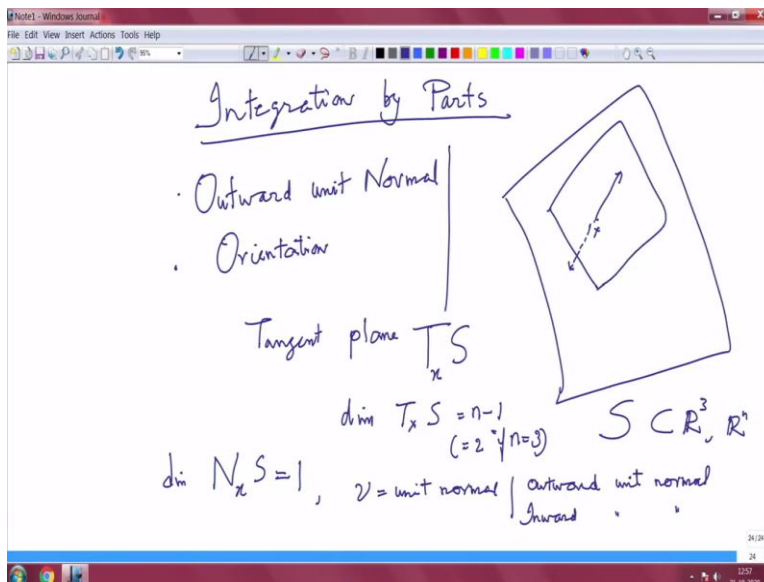 Note1 - Windows Journal
File Edit View Insert Actions Tools Help
Integration by Parts
· Outward unit Normal
· Orientation
x
Tangent plane TₓS
dim TₓS = n-1
(=2 if n=3)
S ⊂ R³, Rⁿ
dim NₓS = 1, ν = unit normal | outward unit normal
Inward " "
24/24
24
12:57